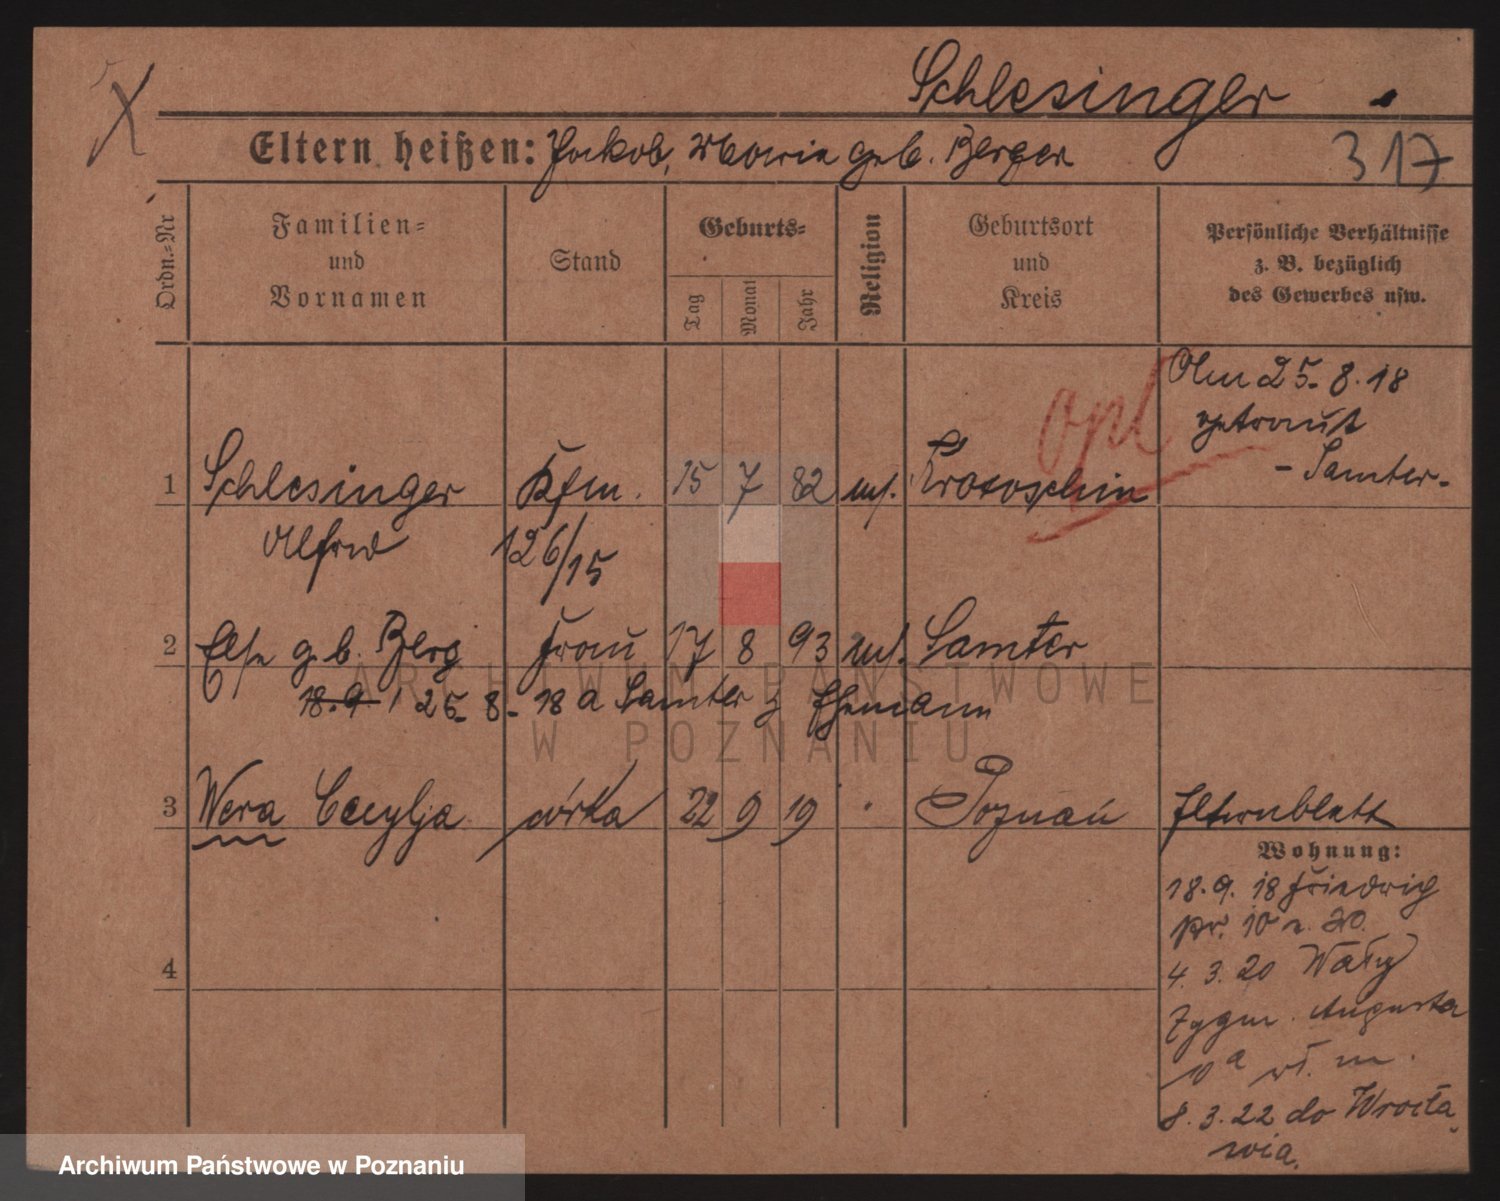 Schlesinger
Eltern heißen: Jackob, Maria geb. Berger
317
Ordn.-Nr
Familien-
und
Vornamen
Stand
Geburts-
Tag
Monat
Jahr
Religion
Geburtsort
und
Kreis
Persönliche Verhältnisse
z. B. bezüglich
des Gewerbes usw.
opl
Am 25. 8. 18
getraut
- Samter -
1 Schlesinger Kfm. 15 7 82 mos. Krotoschin
Alfred 126/15
2 Else geb. Berg Frau 17 8 93 mos. Samter
18.9 25. 8. 18 a Samter z Ehemann
3 Wera Cecylja córka 22 9 19 " Poznań Elternblatt
Wohnung:
18. 9. 18 Friedrich
str. 10
4
4. 3. 20 Wały
Zygm. Augusta
10a
8. 3. 22 do Wrocła
wia.
ARCHIWUM PAŃSTWOWE
W POZNANIU
Archiwum Państwowe w Poznaniu